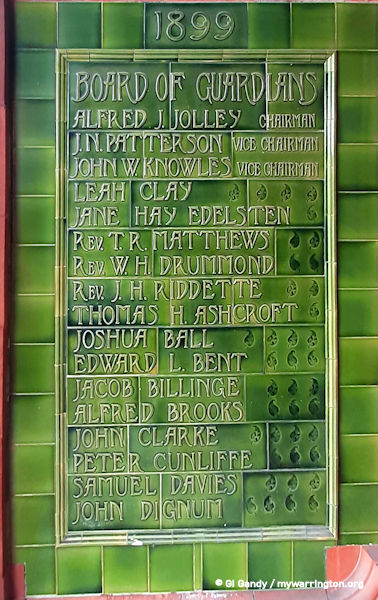 1899
BOARD OF GUARDIANS
ALFRED J. JOLLEY CHAIRMAN
J.N. PATTERSON VICE CHAIRMAN
JOHN W. KNOWLES VICE CHAIRMAN
LEAH CLAY
JANE HAY EDELSTEN
REV. T. R. MATTHEWS
REV. W. H. DRUMMOND
REV. J. H. RIDDETTE
THOMAS H. ASHCROFT
JOSHUA BALL
EDWARD L. BENT
JACOB BILLINGE
ALFRED BROOKS
JOHN CLARKE
PETER CUNLIFFE
SAMUEL DAVIES
JOHN DIGNUM
© GI Gandy / mywarrington.org